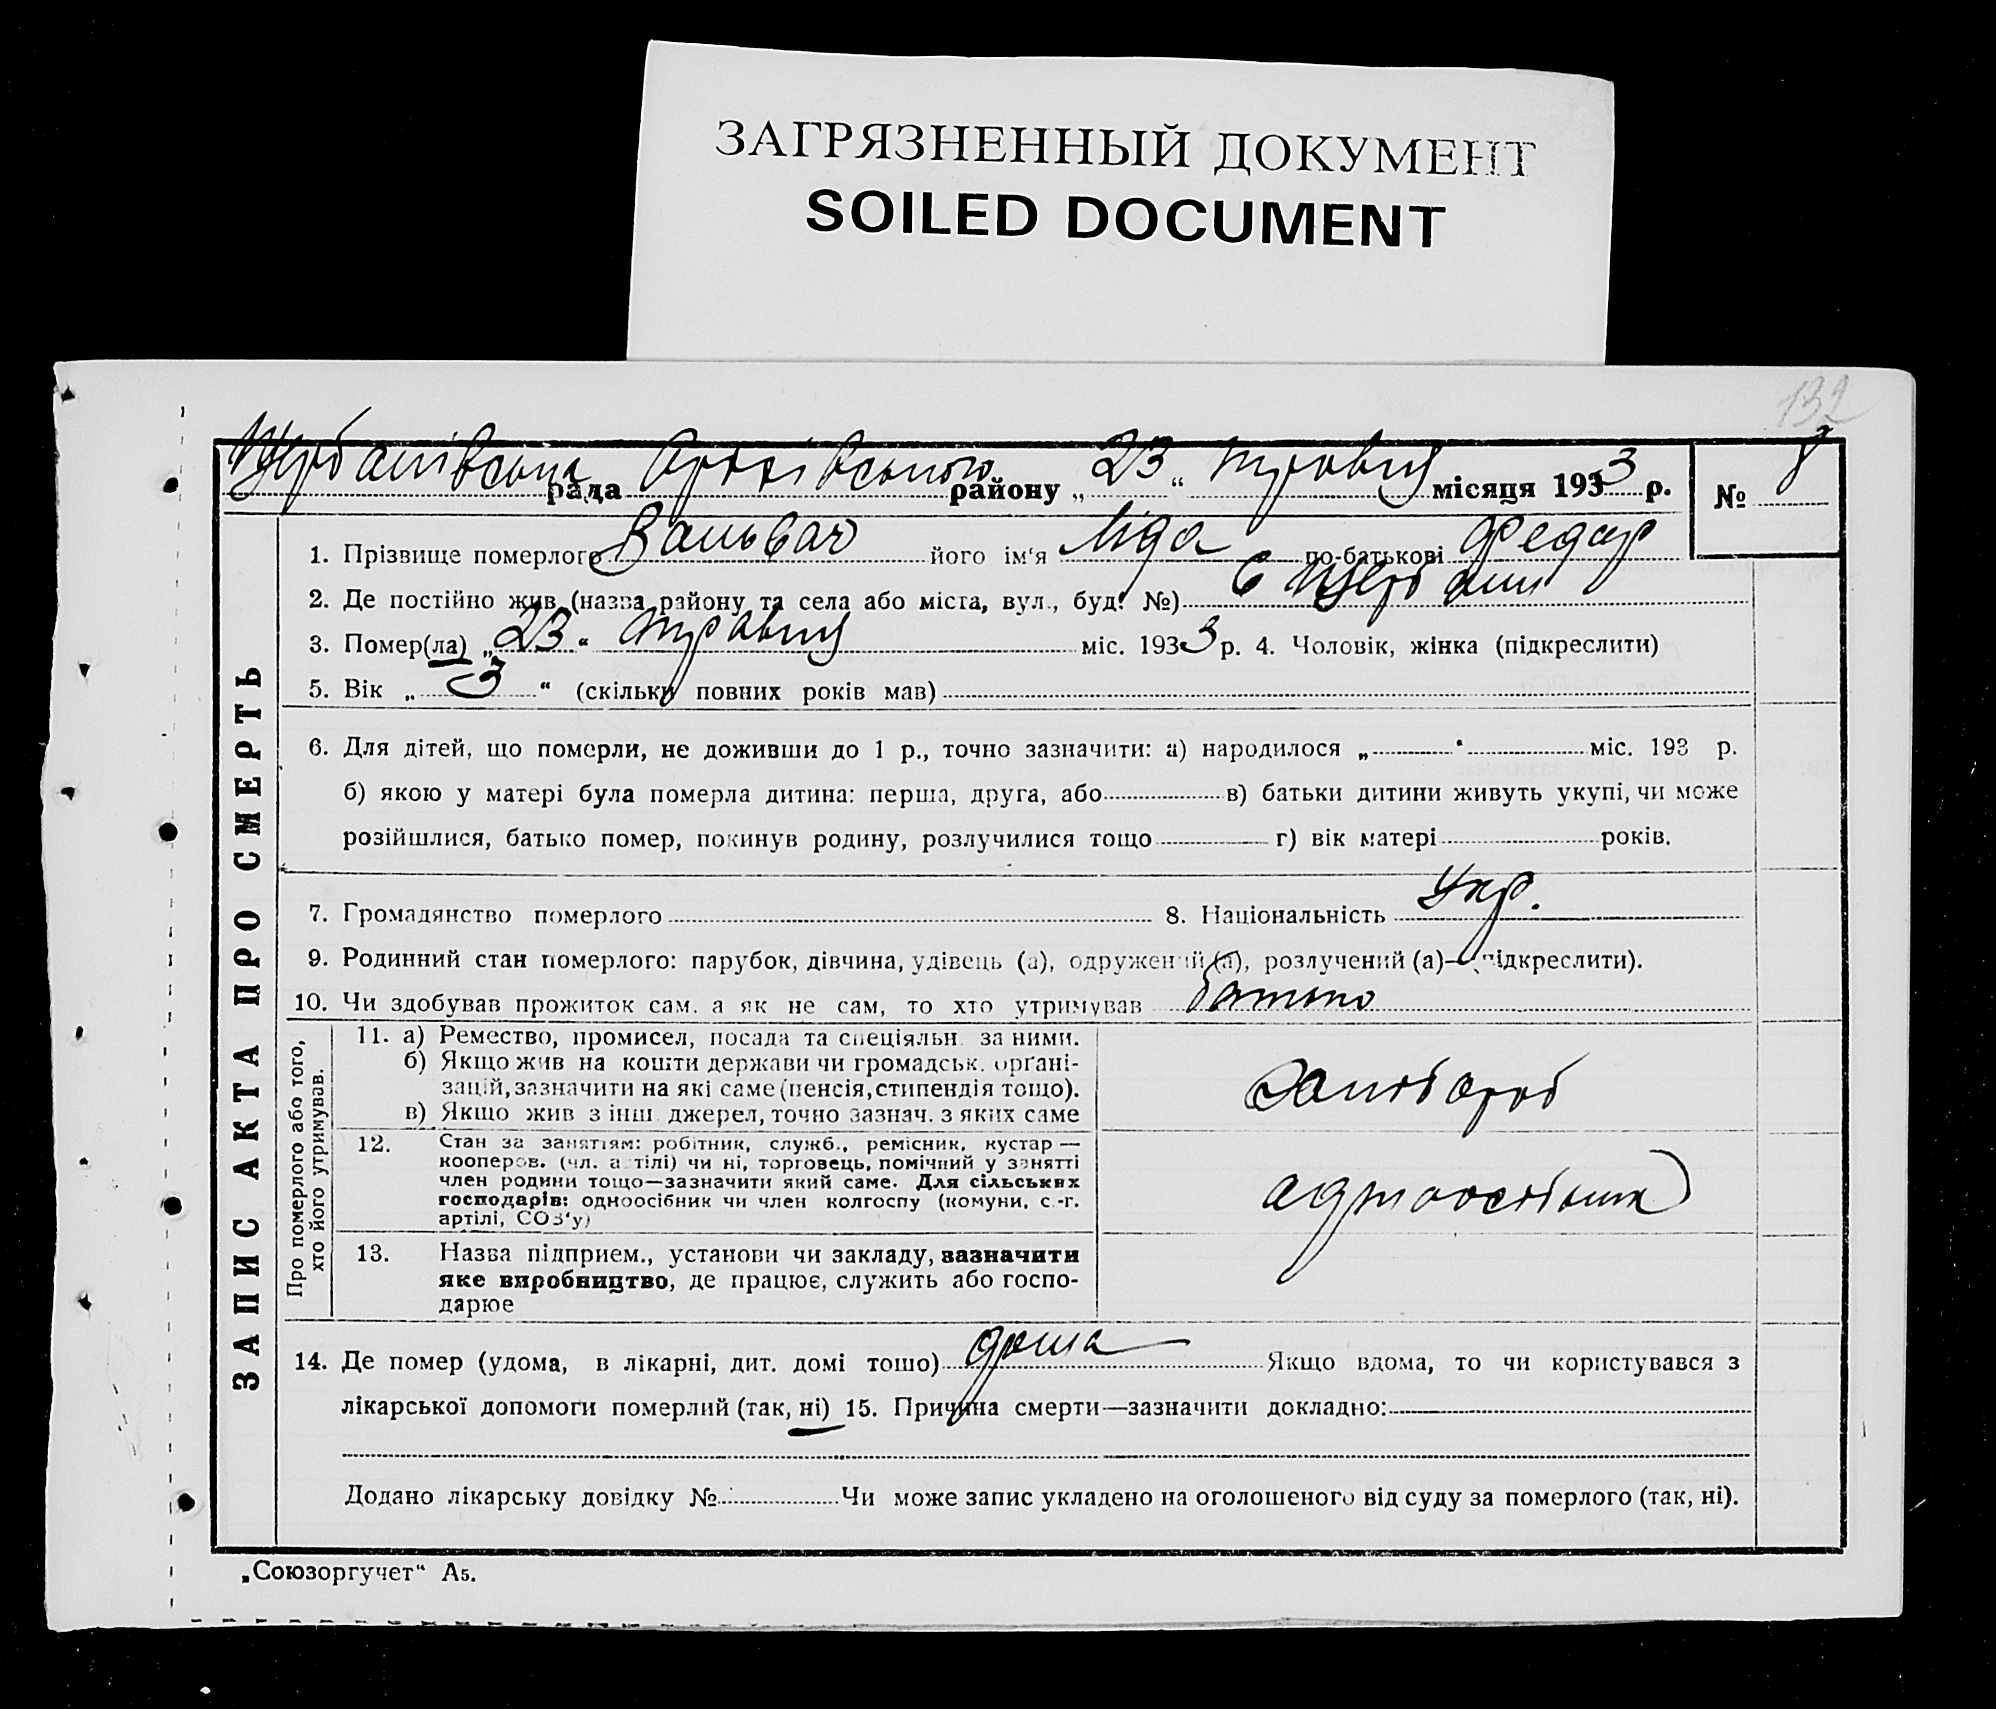 ЗАГРЯЗНЕННЫЙ ДОКУМЕНТ
SOILED DOCUMENT
132
рада району „23“ травня місяця 1933 р. № 8
ЗАПИС АКТА ПРО СМЕРТЬ
1. Прізвище померлого його ім'я Ліда по-батькові Федор
2. Де постійно жив (назва району та села або міста, вул., буд. №) с Щербані
3. Помер(ла) „23“ травня міс. 1933 р. 4. Чоловік, жінка (підкреслити)
5. Вік „3“ (скільки повних років мав)
6. Для дітей, що померли, не доживши до 1 р., точно зазначити: а) народилося „ “ міс. 193 р.
б) якою у матері була померла дитина: перша, друга, або в) батьки дитини живуть укупі, чи може
розійшлися, батько помер, покинув родину, розлучилися тощо г) вік матері років.
7. Громадянство померлого 8. Національність Укр.
9. Родинний стан померлого: парубок, дівчина, удівець (а), одружений (а), розлучений (а)— (підкреслити).
10. Чи здобував прожиток сам, а як не сам, то хто утримував батько
Про померлого або того,
хто його утримував.
11. а) Ремество, промисел, посада та спеціяльн. за ними.
б) Якщо жив на кошти держави чи громадськ. орґані-
зацій, зазначити на які саме (пенсія, стипендія тощо).
в) Якщо жив з інш. джерел, точно зазнач. з яких саме
хлібороб
12. Стан за заняттям: робітник, служб., ремісник, кустар —
кооперов. (чл. артілі) чи ні, торговець, помічний у занятті
член родини тощо—зазначити який саме. Для сільських
господарів: одноосібник чи член колгоспу (комуни, с.-г.
артілі, СОЗ'у)
одноосібник
13. Назва підприєм., установи чи закладу, зазначити
яке виробництво, де працює, служить або госпо-
дарює
14. Де помер (удома, в лікарні, дит. домі тощо) дома Якщо вдома, то чи користувався з
лікарської допомоги померлий (так, ні) 15. Причина смерти—зазначити докладно:
Додано лікарську довідку № Чи може запис укладено на оголошеного від суду за померлого (так, ні).
„Союзоргучет“ А5.